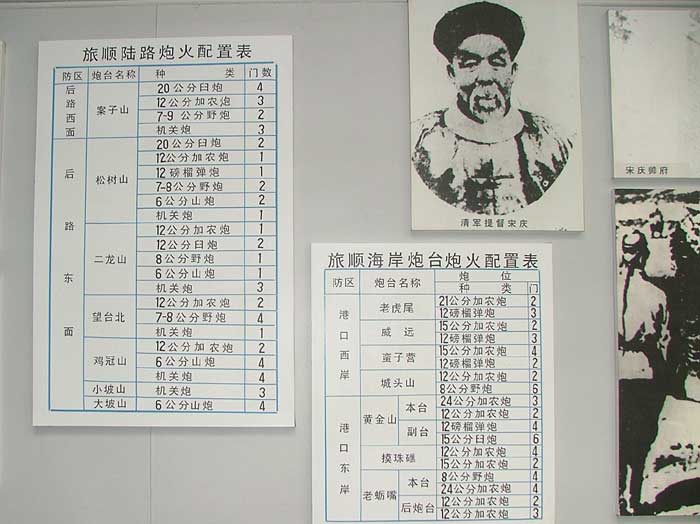 旅顺陆路炮火配置表
防区 炮台名称 种 类 门数
后路西面 案子山 20公分臼炮 4
12公分加农炮 3
7-9公分野炮 2
机关炮 3
后路东面 松树山 20公分臼炮 2
12公分加农炮 1
12磅榴弹炮 1
7-8公分野炮 2
6公分山炮 2
机关炮 1
二龙山 12公分加农炮 1
12公分臼炮 2
8公分野炮 1
6公分山炮 1
机关炮 3
望台北 12公分加农炮 2
7-8公分野炮 4
机关炮 1
鸡冠山 12公分加农炮 2
6公分山炮 4
机关炮 4
小坡山 机关炮 3
大坡山 6公分山炮 4
清军提督宋庆
宋庆帅府
旅顺海岸炮台炮火配置表
防区 炮台名称 炮 位
种 类 门
港口西岸 老虎尾 21公分加农炮 2
12磅榴弹炮 3
威远 15公分加农炮 2
12磅榴弹炮 1
蛮子营 15公分加农炮 4
12磅榴弹炮 2
城头山 12公分加农炮 2
8公分野炮 6
港口东岸 黄金山 本台 24公分加农炮 3
12公分加农炮 2
副台 12磅榴弹炮 4
15公分臼炮 6
摸珠礁 12公分加农炮 4
15公分加农炮 2
老蛎嘴 本台 8公分野炮 4
24公分加农炮 4
后炮台 12公分加农炮 2
12公分加农炮 3